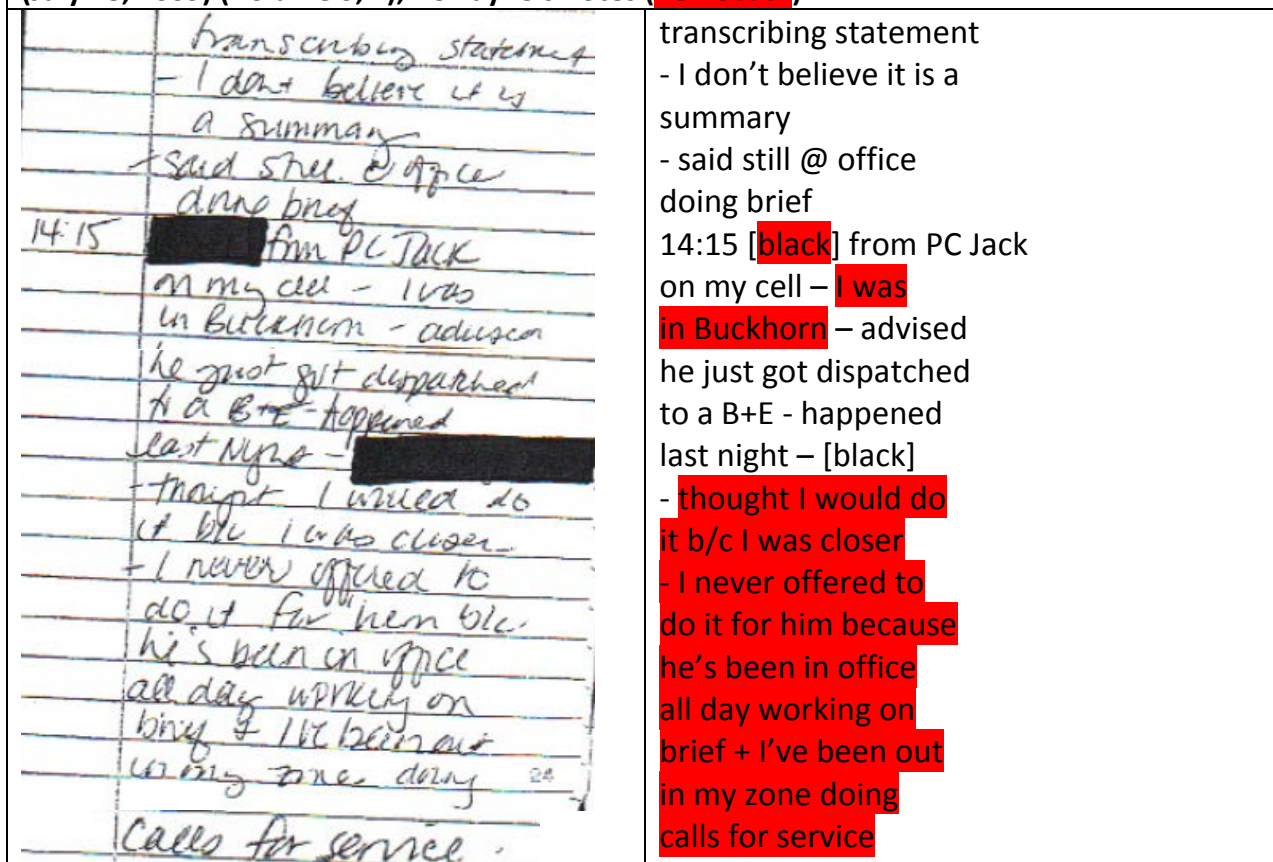 transcribing statement
- I dont believe it is
a summary
- said still @ office
doing brief
14:15 from PC Jack
on my cell - I was
in Buckhorn - advised
he just got dispatched
to a B+E - happened
last night -
- thought I would do
it b/c I was closer
- I never offered to
do it for him b/c
he's been in office
all day working on
brief + I've been out
in my zone doing 24
calls for service.
transcribing statement
- I don’t believe it is a
summary
- said still @ office
doing brief
14:15 [black] from PC Jack
on my cell – I was
in Buckhorn – advised
he just got dispatched
to a B+E - happened
last night – [black]
- thought I would do
it b/c I was closer
- I never offered to
do it for him because
he’s been in office
all day working on
brief + I’ve been out
in my zone doing
calls for service